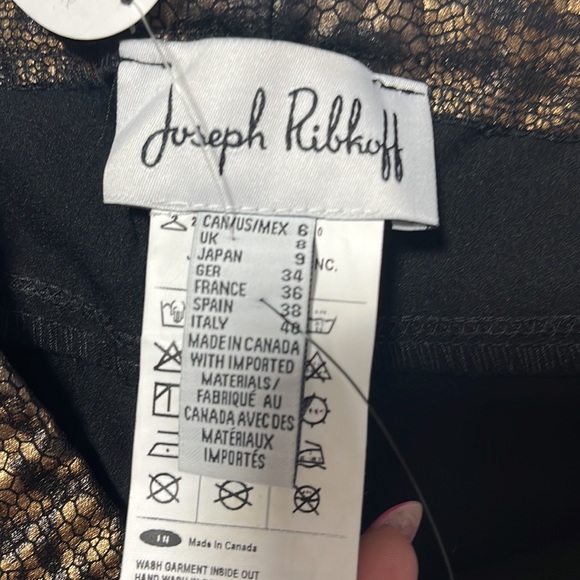 Joseph Ribkoff
CAN/US/MEX 6
UK 8
JAPAN 9
GER 34
FRANCE 36
SPAIN 38
ITALY 40
MADE IN CANADA
WITH IMPORTED
MATERIALS/
FABRIQUÉ AU
CANADA AVEC DES
MATÉRIAUX
IMPORTÉS
NC.
Made in Canada
WASH GARMENT INSIDE OUT